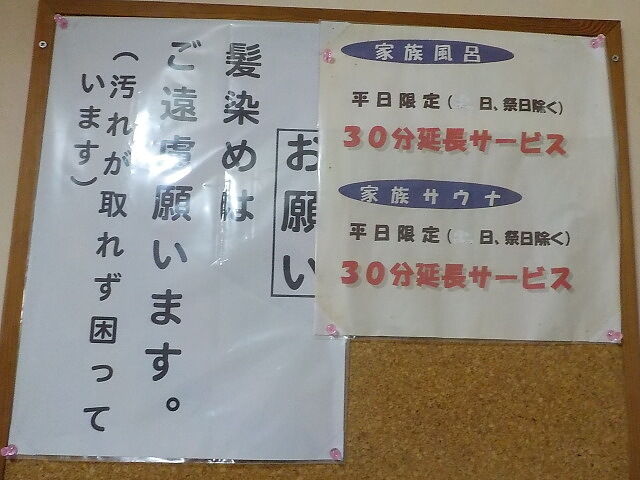 お願い
髪染めは
ご遠慮願います。
(汚れが取れず困って
います)
家族風呂
平日限定( 日、祭日除く)
30分延長サービス
家族サウナ
平日限定( 日、祭日除く)
30分延長サービス